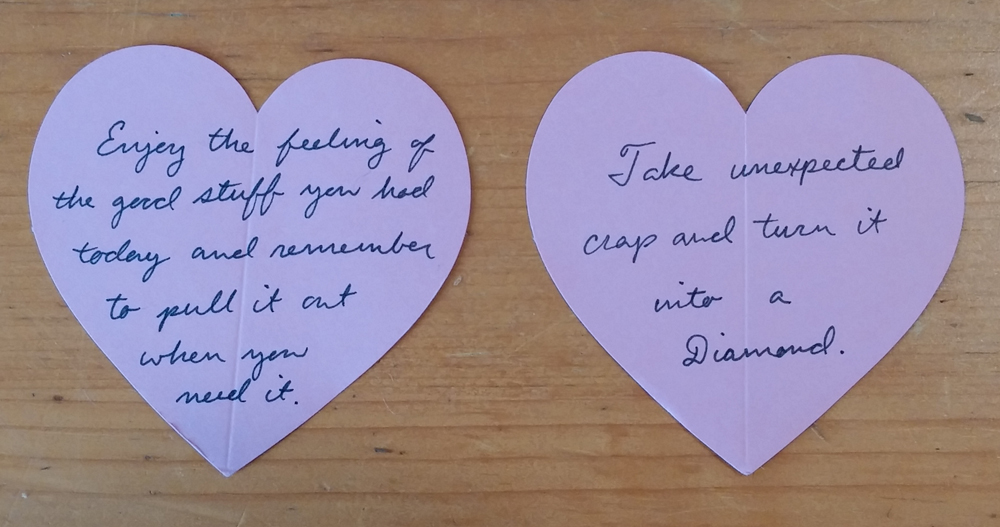 Enjoy the feeling of
the good stuff you had
today and remember
to pull it out
when you
need it.
Take unexpected
crap and turn it
into a
Diamond.